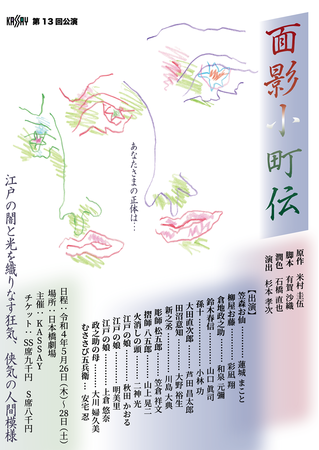 KASSAY 第13回公演
面影小町伝
あなたさまの正体は…
原作 米村圭伍
脚本 有賀沙織
潤色 石橋直也
演出 杉本孝次
【出演】
笠森お仙………蓮城まこと
柳屋お藤………彩凪翔
倉地政之助………和泉元彌
鈴木春信………山口眞司
孫十………小林功
大田直次郎………芦田昌太郎
田沼意知………大野裕生
新之丞………川島大典
彫師 松五郎………笠倉祥文
摺師 八五郎………山上晃二
火消しの頭………二神光
江戸の娘………秋田かおる
江戸の娘………明美里
江戸の娘………上倉悠奈
政之助の母………大川婦久美
むささび五兵衛…安宅忍
日程：令和4年5月26日(木)〜28日(土)
場所：日本橋劇場
主催：KASSAY
チケット：SS席九千円 S席八千円
江戸の闇と光を織りなす狂気、侠気の人間模様